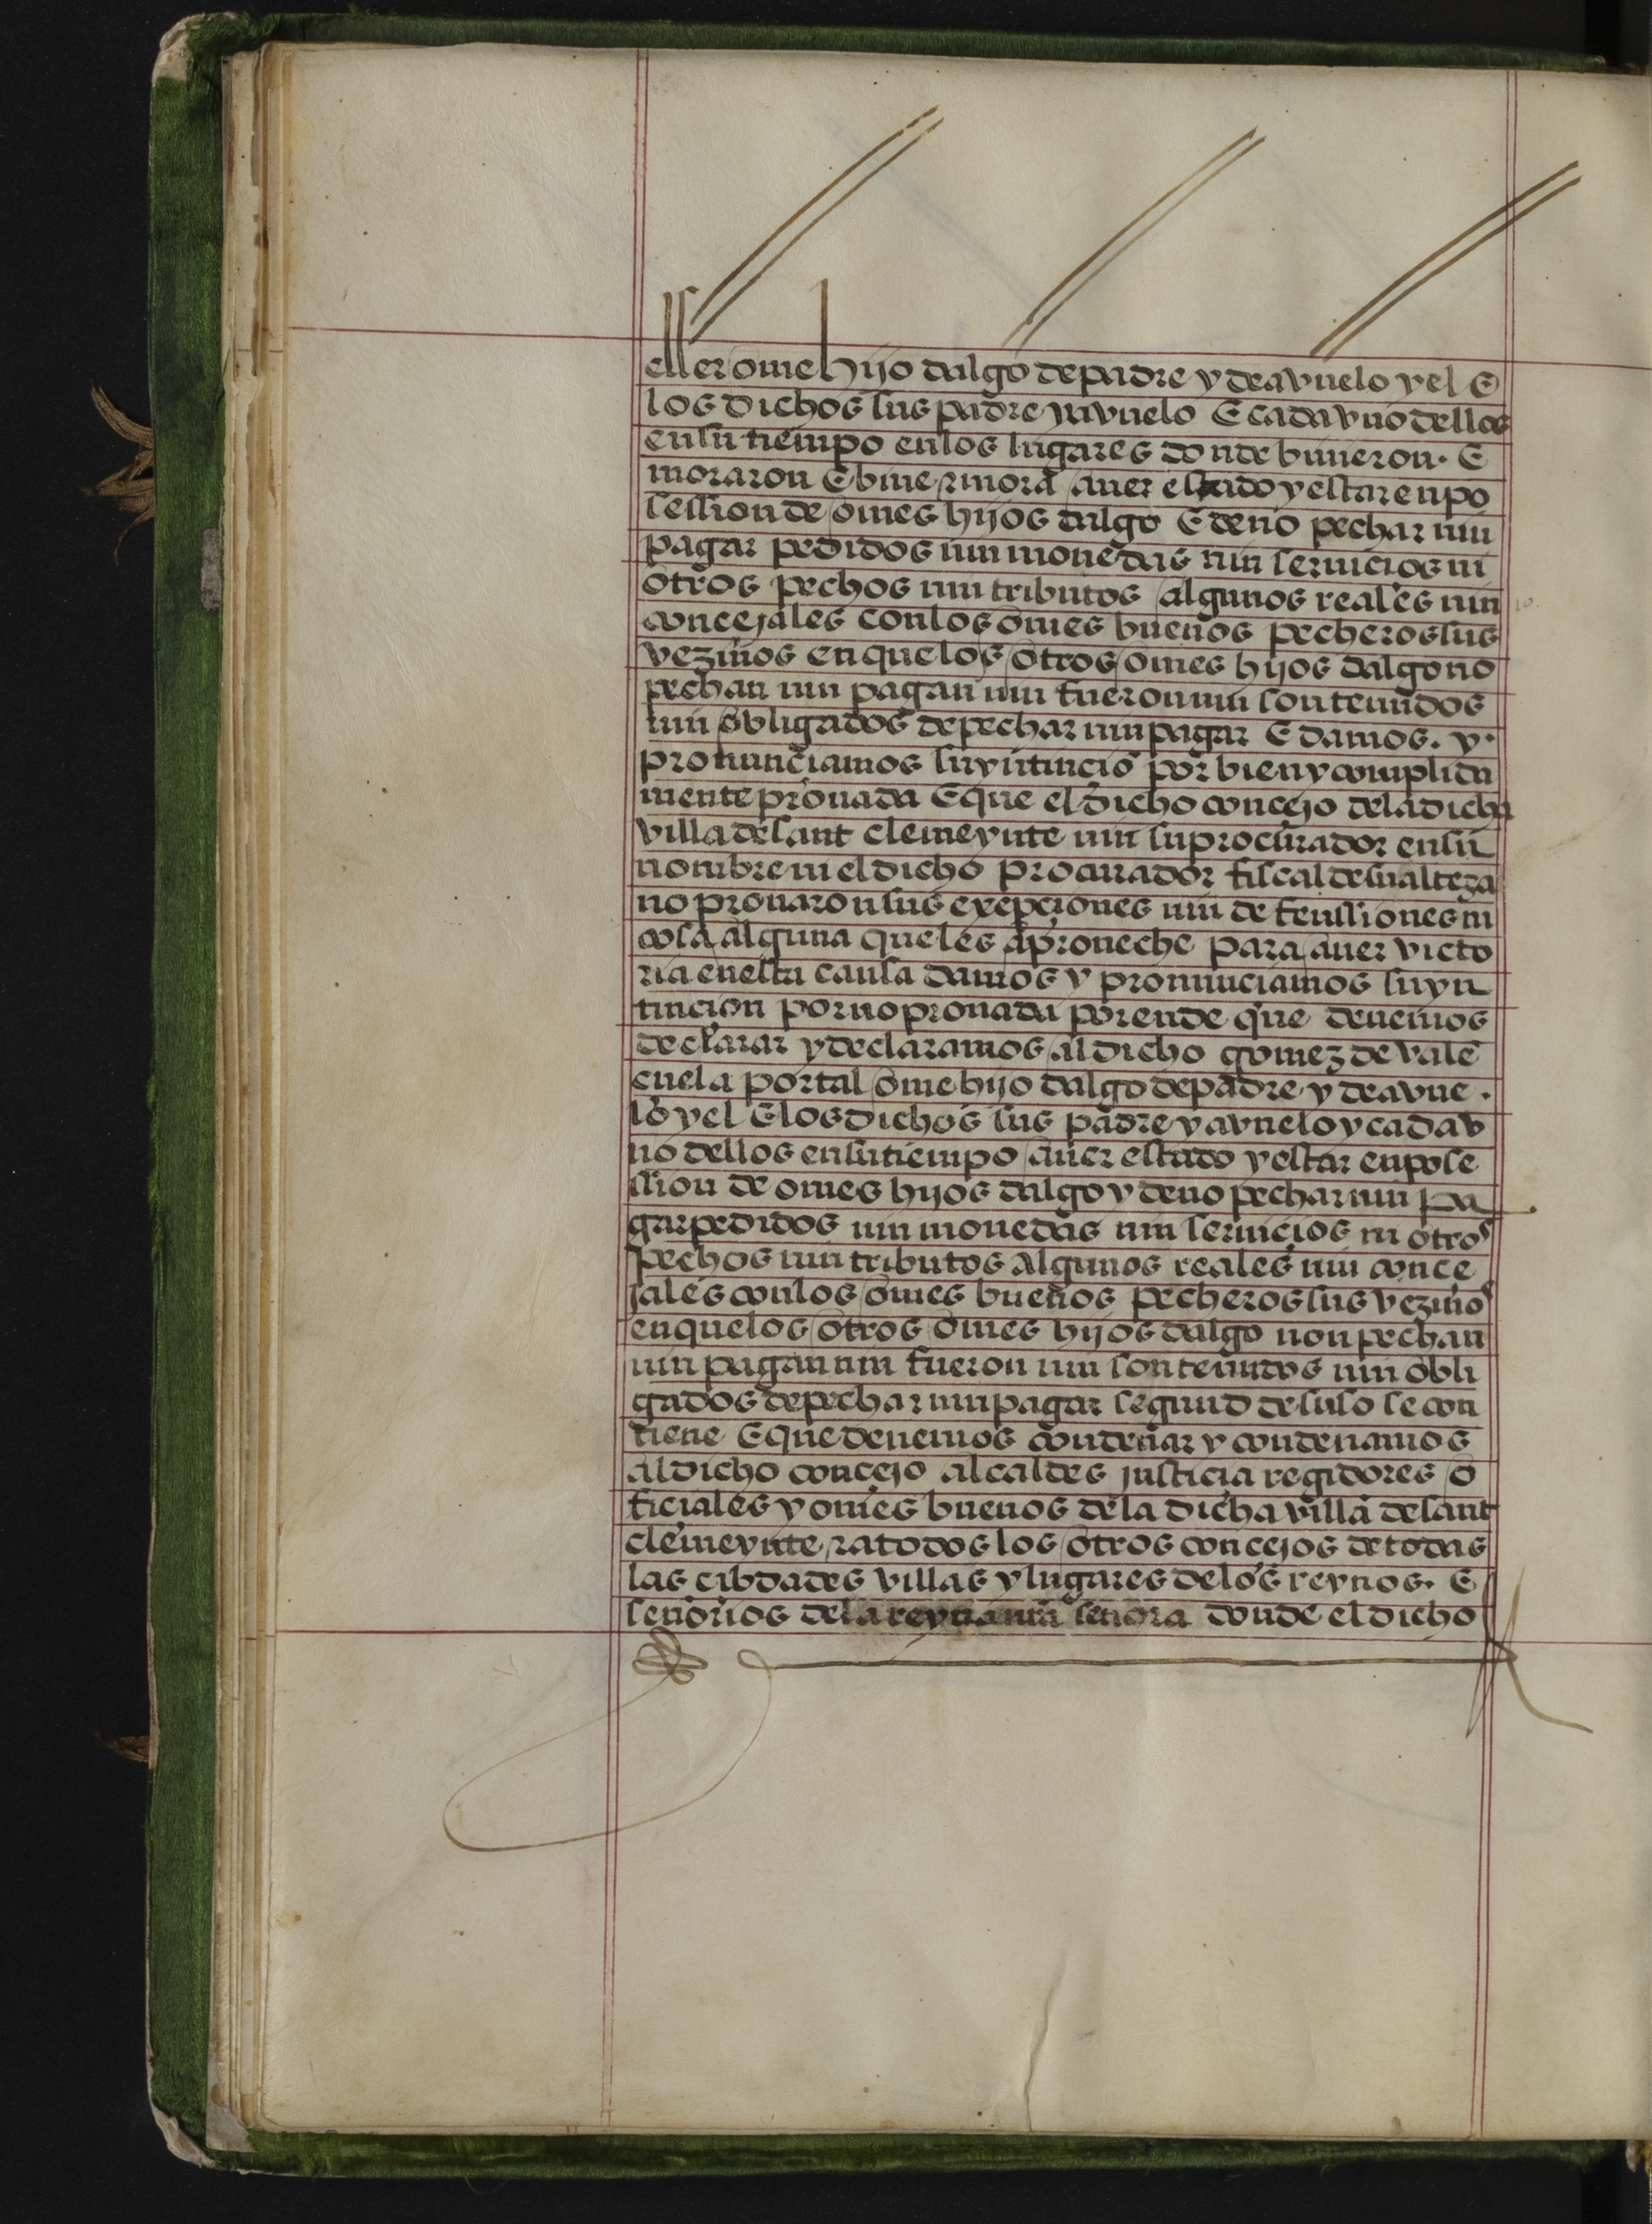 el ser ome hijo dalgo de padre y de avuelo y el E
los dichos sus padre y avuelo E cada vno dellos
en su tiempo en los lugares donde biuieron. E
moraron E biue z mora auer estado y estar en po
session de omes hijos dalgo E de no pechar nin
pagar pedidos nin monedas nin seruicios ni
otros pechos nin tributos algunos reales nin
concejales con los omes buenos pecheros sus
vezinos en que los otros omes hijos dalgo no
pechan nin pagan nin fueron nin son tenudos
nin obligados de pechar nin pagar E damos. y.
pronunciamos su yntinció por bien y complida
mente prouada E que el dicho concejo de la dicha
villa de sant clemeynte nin su procurador en su
nombre ni el dicho procurador fiscal de su alteza
no prouaron sus exepciones nin defenssiones ni
cosa alguna que les aproueche para auer victo
ria en esta causa damos y pronunciamos su yn
tincion por no prouada porende que deuemos
declarar y declaramos al dicho gomez de vale
cuela por tal ome hijo dalgo de padre y de avue.
lo y el E los dichos sus padre y avuelo y cada v
no dellos en su tiempo auer estado y estar en pose
ssion de omes hijos dalgo y de no pechar nin pa
gar pedidos nin monedas nin seruicios ni otros
pechos nin tributos algunos reales nin conce
jales con los omes buenos pecheros sus vezinos
en que los otros omes hijos dalgo non pechan
nin pagan nin fueron nin son tenudos nin obli
gados de pechar nin pagar segund de suso se con
tiene E que deuemos condenar y condenamos
al dicho concejo alcaldes justicia regidores o
ficiales y omes buenos de la dicha villa de sant
clemeynte z a todos los otros concejos de todas
las cibdades villas y lugares de los reynos. E
señorios de la reyna nrã señora donde el dicho